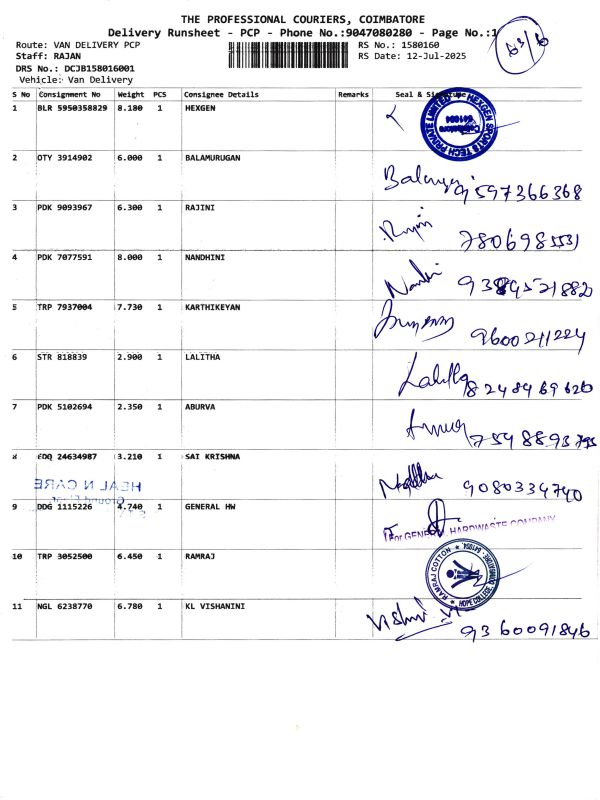 THE PROFESSIONAL COURIERS, COIMBATORE
Delivery Runsheet - PCP - Phone No.:9047080280 - Page No.:1
Route: VAN DELIVERY PCP RS No.: 1580160
Staff: RAJAN RS Date: 12-Jul-2025
DRS No.: DCJB158016001
Vehicle: Van Delivery
S No Consignment No Weight PCS Consignee Details Remarks Seal & Signature
1 BLR 5950358829 8.180 1 HEXGEN
HEXGEN SPORTS TECH PRIVATE LIMITED
Coimbatore
2 OTY 3914902 6.000 1 BALAMURUGAN
9597366368
3 PDK 9093967 6.300 1 RAJINI
7806985531
4 PDK 7077591 8.000 1 NANDHINI
5 TRP 7937004 7.730 1 KARTHIKEYAN
9600211224
6 STR 818839 2.900 1 LALITHA
Lalitha 8248469620
7 PDK 5102694 2.350 1 ABURVA
8 EDQ 24634987 3.210 1 SAI KRISHNA
9080334740
HEAL N CARE
Ground Floor
9 DDG 1115226 4.740 1 GENERAL HW
For GENERAL HARDWASTE COMPANY
10 TRP 3052500 6.450 1 RAMRAJ
RAMRAJ COTTON
HOPE COLLEGE
11 NGL 6238770 6.780 1 KL VISHANINI
9360091846